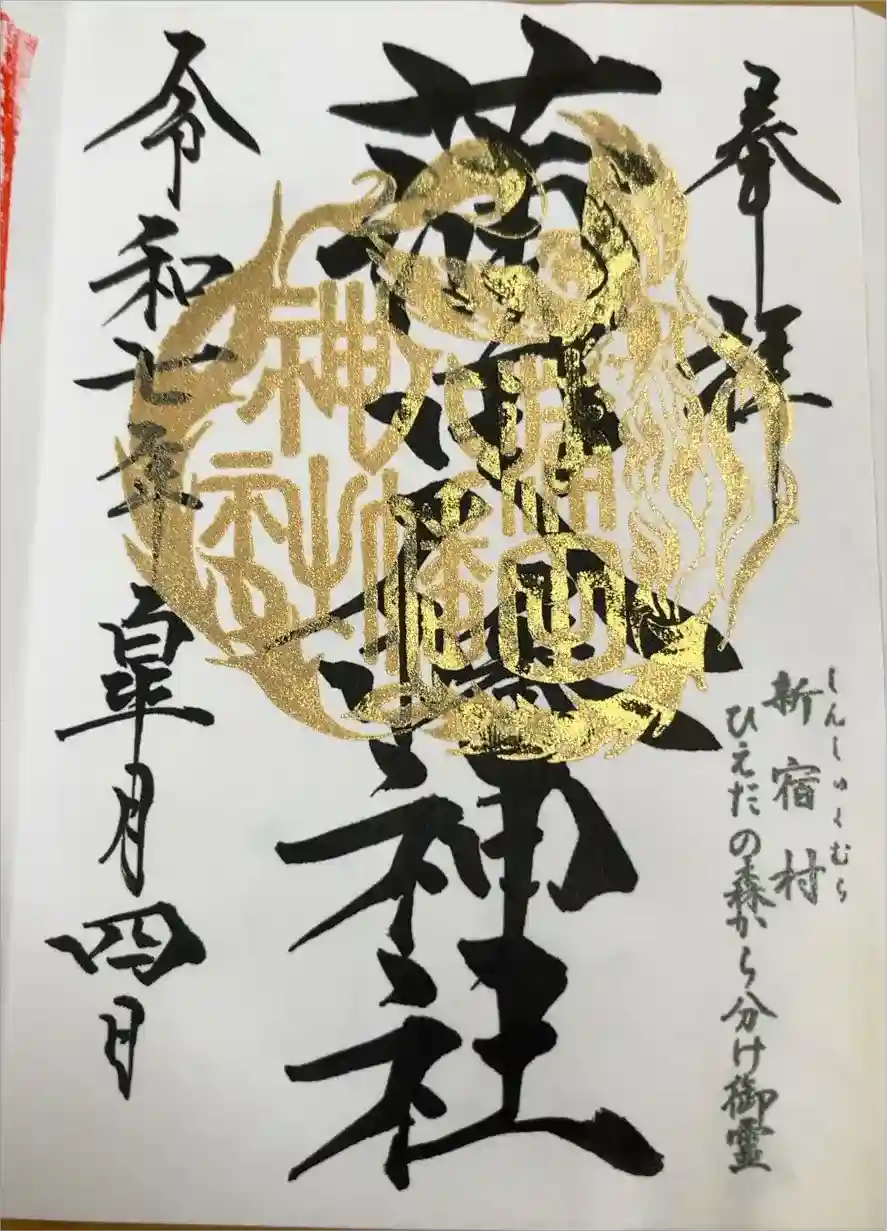 奉拝
しんしゅくむら
新宿村
ひえだの森から分け御霊
蒲田八幡神社
蒲田
八幡
神社
令和七年皐月四日